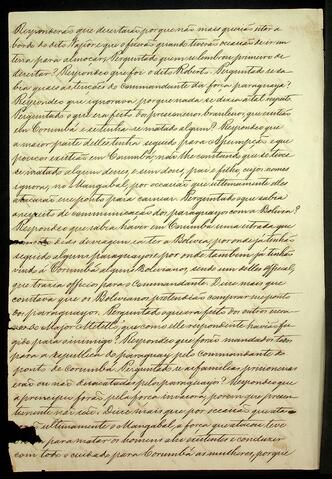 Responderão que desertarão porque não mais querião estar a
bordo do dito Vapor e que o fizerão quando tiverão occasião de ir em
terra para almoçar. Perguntado quem se lembrou primeiro de
desertar? Respondeo que foi o dito Roberto. Perguntado se sa-
bia quaes as tenções do Commandante da força paraguaya?
Respondeo que ignorava, porque nada se dizia a tal respeito.
Perguntado o que era feito dos prisioneiros brasileiros, que existião
em Corumbá, e se tinha-se matado algum? Respondeo que
a maior parte delles tinha seguido para Assumpção, e que
poucos existião em Corumbá, não lhe constando que se tives-
se matado algum desses, e sim dous, pai e filho cujos nomes
ignora, no Mangabal, por occasião que ultimamente elles
atacarão esse ponto para carnear. Perguntado o que sabia a
respeito de communicação dos paraguayos com a Bolivia?
Respondeo que sabia haver em Corumbá uma estrada que
dias de viagem, ia ter a Bolivia, por onde já tinhão
seguido alguns paraguayos e por onde tambem já tinhão
vindo a Corumbá alguns Bolivianos, sendo um delles official,
que trazia officios para o Commandante. Disse mais que
constava que os Bolivianos pretendião comprar usos pontos
dos paraguayos. Perguntado o que era feito dos outros escra-
vos do Major Metello, que como elle respondente havião fu-
gido para o inimigo? Respondeo que forão mandados todos
para a republica do paraguay pelo Commandante do
ponto de Corumbá. Perguntado se as familias prisioneiras
erão ou não desacatadas pelos paraguayos? Respondeo que
a principio forão pela força invasora, porem que presen-
temente não são. Disse mais que por occasião que ata-
ultimamente o Mangabal, a força que atacou teve
para matar os homens alli existentes e conduzir
com todo o cuidado para Corumbá as mulheres, porque